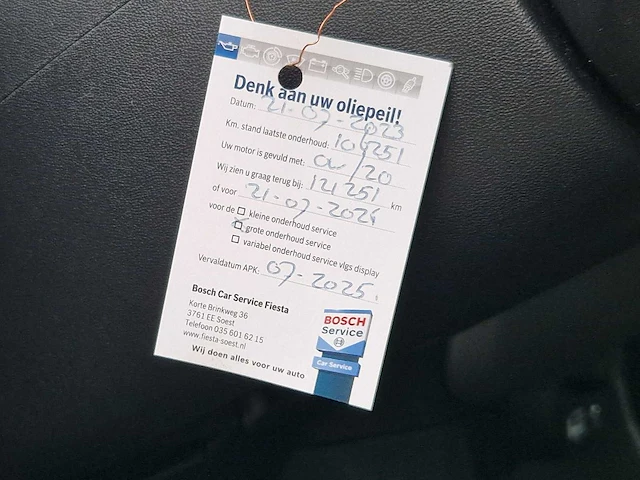 Denk aan uw oliepeil!
Datum: 21-07-2023
Km. stand laatste onderhoud: 106251
Uw motor is gevuld met: 0W/20
Wij zien u graag terug bij: 121251 km
of voor 21-07-2025
voor de □ kleine onderhoud service
□ grote onderhoud service
□ variabel onderhoud service vlgs display
Vervaldatum APK: 07-2025.
Bosch Car Service Fiesta
Korte Brinkweg 36
3761 EE Soest
Telefoon 035 601 62 15
www.fiesta-soest.nl
Wij doen alles voor uw auto
BOSCH
Service
Car Service